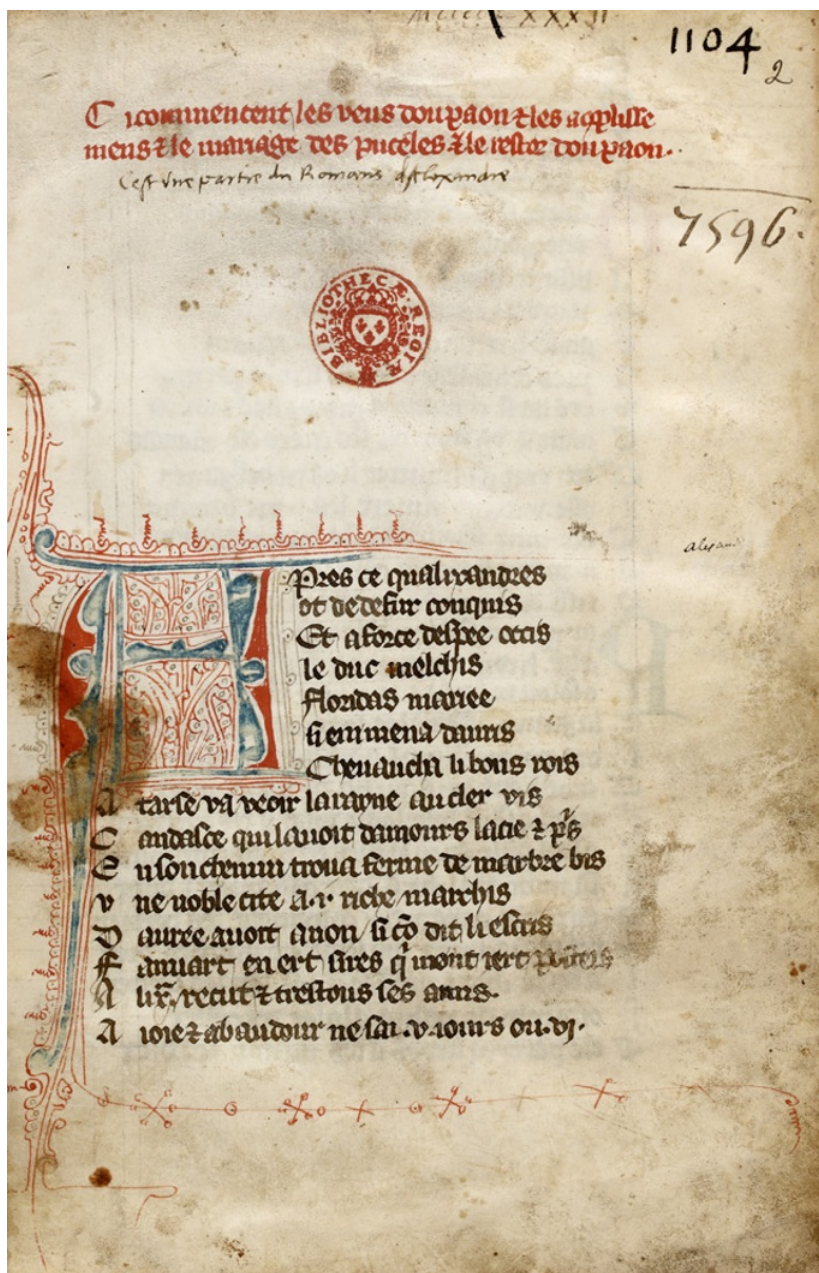 1104
2
C i commencent les veus dou paon ⁊ les acplisse
mens ⁊ le mariage des puceles ⁊ le restor dou paon.
C'est une partie du Romans d'Alexandre
7596.
BIBLIOTHECÆ REGIÆ
Apres ce qualixandres
ot dedefur conquis
Et a force despee ocis
le duc melchis
floridas mariee
si enmena dauris
Chevaucha li bons rois
A tarse va veoir la royne au cler vis
C andasce qui lavoit damours lacie ⁊ pris
E n son chemin trova ferme de marbre bis
v ne noble cite a .i. riche marchis
D auree avoit a non si cõ dit li escris
F anuart en ert sires q̃ mont iert
A lix̃. recut ⁊ trestous ses amis.
A ioie ⁊ abaudour ne sai .v. iours ou .vj.